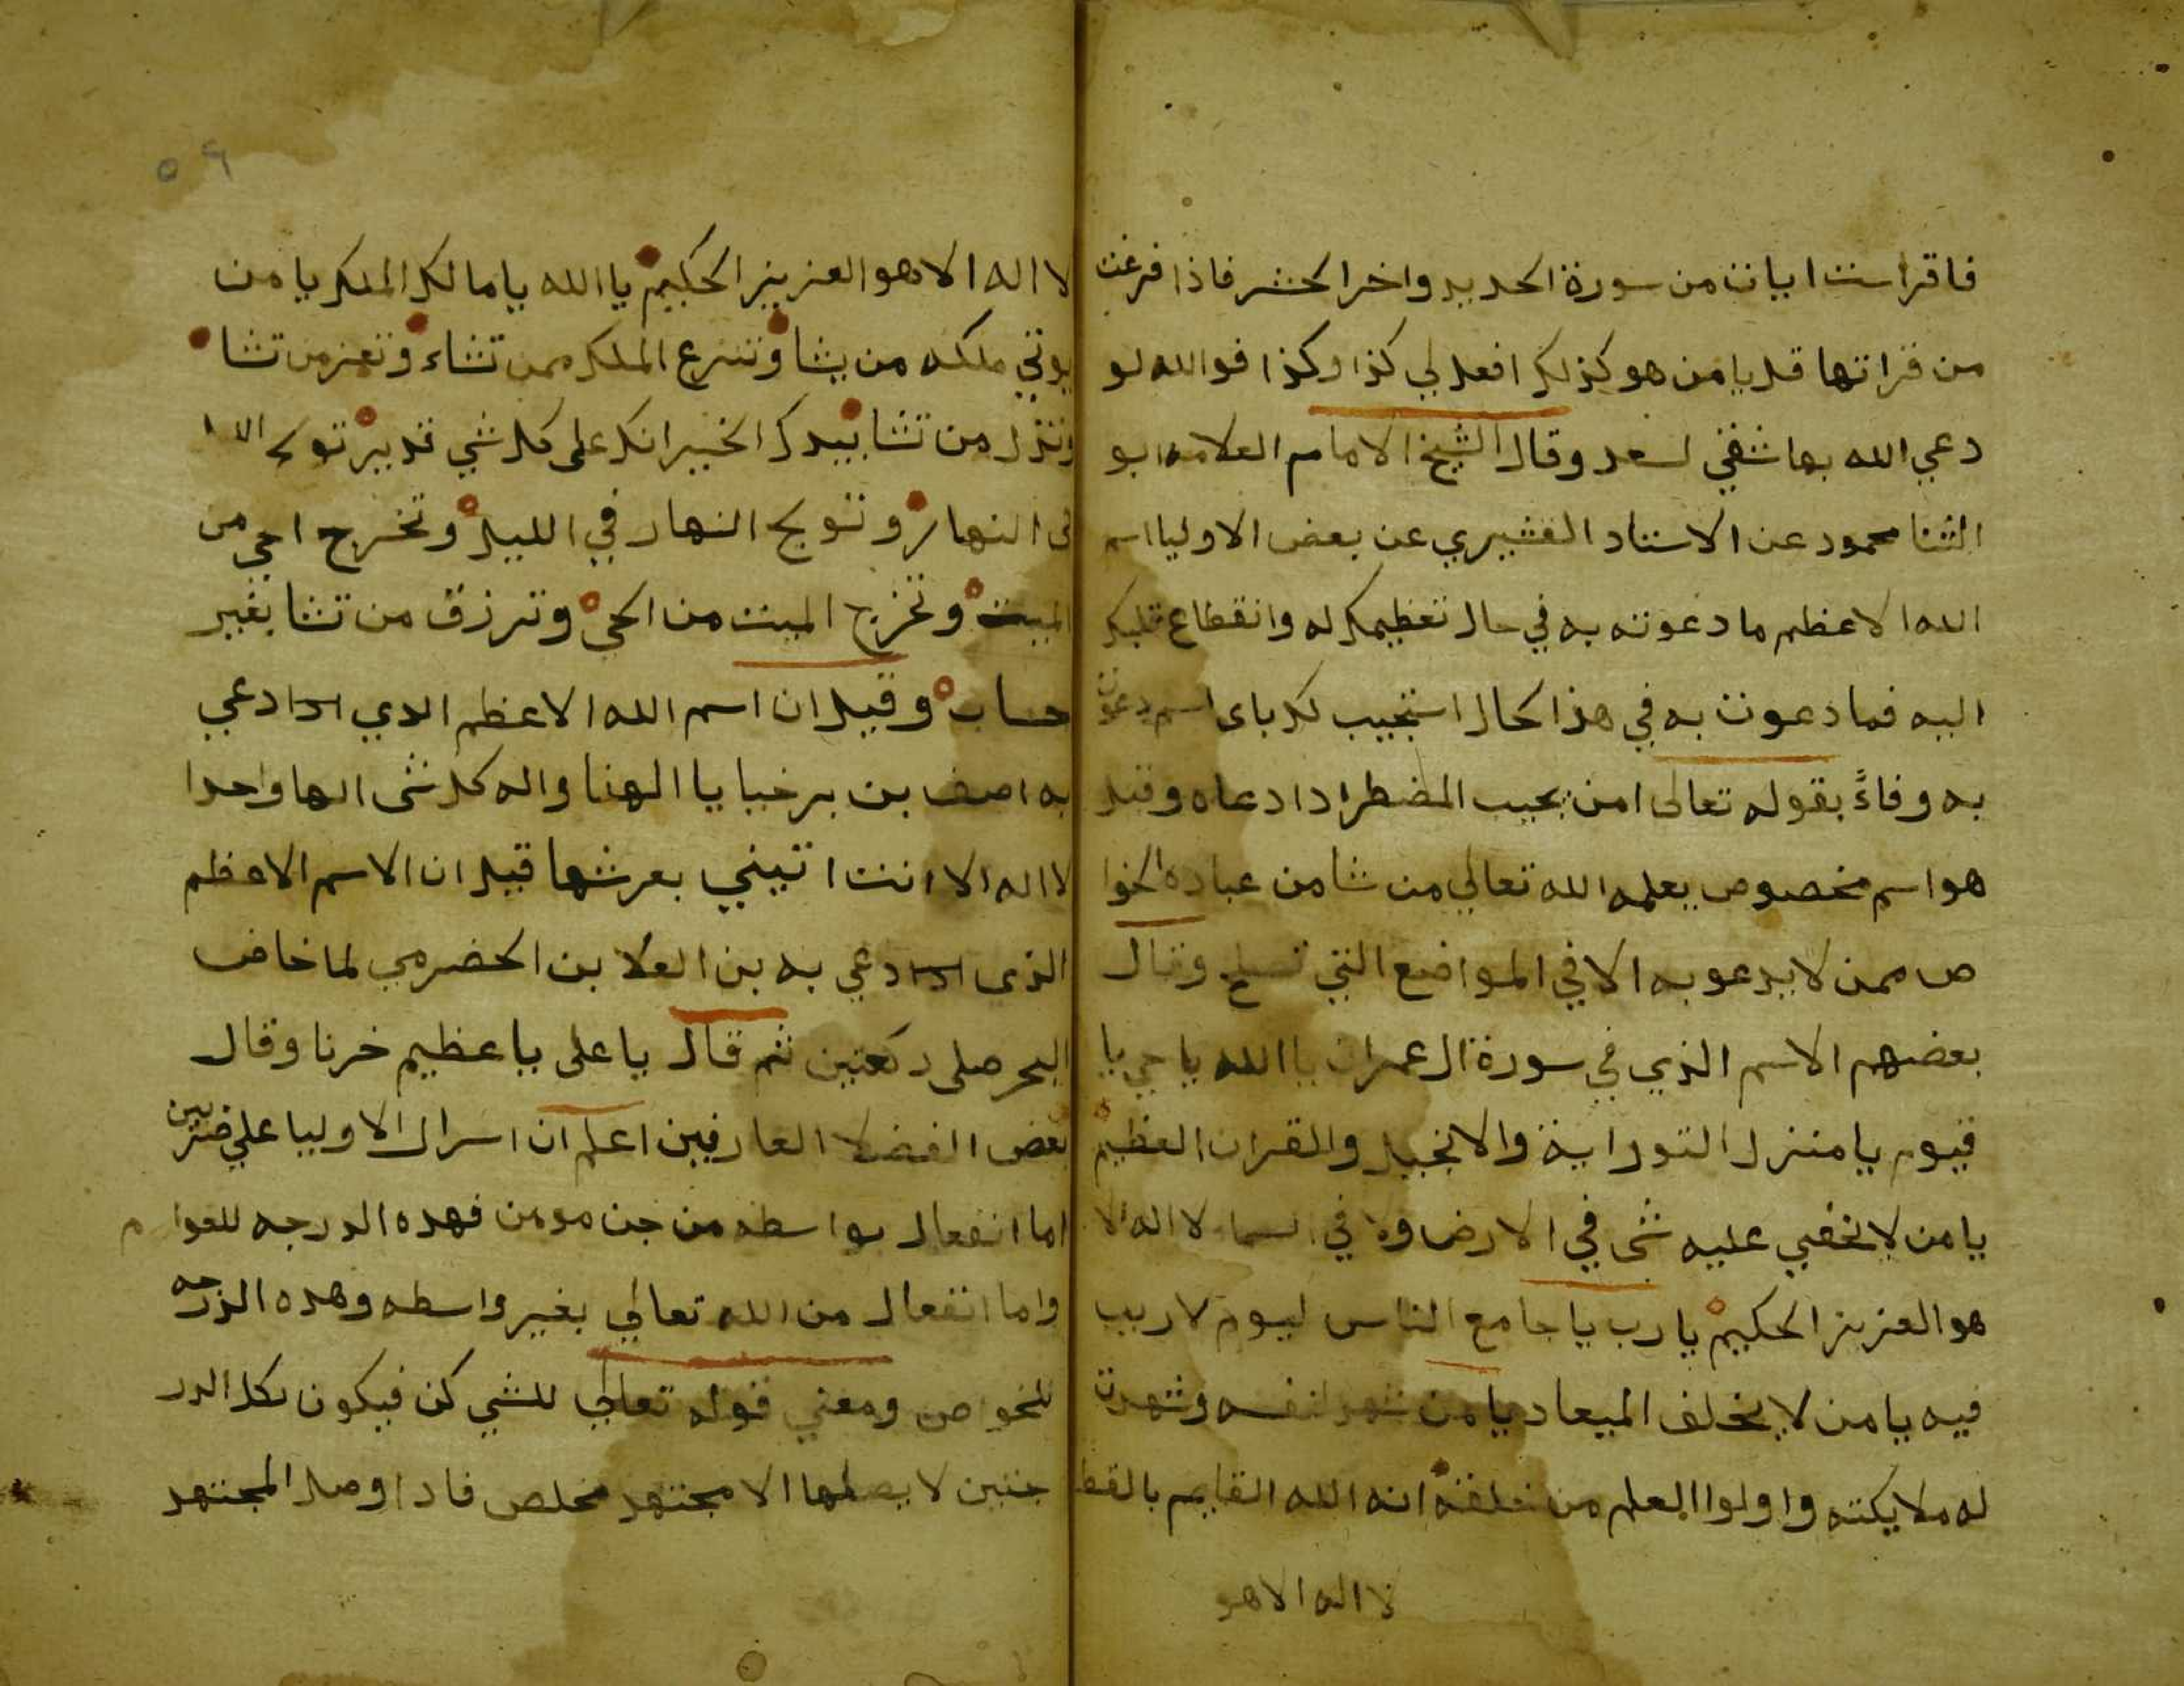 فاقرا ست ايات من سورة الحديد واخر الحشر فاذا فرغت
من قراتها قل يا من هو كذلك افعل لي كذا وكذا فوالله لو
دعي الله بها شقي لسعد وقال الشيخ الامام العلامه ابو
الثنا محمود عن الاستاد القشيري عن بعض الاوليا اسم
الله الاعظم ما دعوته به في حال تعظيمك له وانقطاع قلبك
اليه فما دعوت به في هذا الحال استجيب لك باى اسم دعوت
به وفاءً بقوله تعالى امن يجيب المضطر ادا دعاه وقيل
هو اسم مخصوص يعلمه الله تعالي من شا من عباده الخوا
ص ممن لا يدعو به الا في المواضع التي وقال
بعضهم الاسم الذي في سورة ال عمران يا الله يا حي يا
قيوم يا منزل التوراية والانجيل والقران العظيم
يا من لا يخفي عليه شى في الارض ولا في السماء لا اله الا
هو العزيز الحكيم يا رب يا جامع الناس ليوم لا ريب
فيه يا من لا يخلف الميعاد يا من شهد لنفسه وشهدت
له ملايكته واولوا العلم من خلقه انه الله القايم بالقط
لا اله الا هو
٥٦
لا اله الا هو العزيز الحكيم يا الله يا مالك الملك يا من
يوتي ملكه من يشا وتنزع الملك ممن تشاء وتعز من تشا
وتذل من تشا بيدك الخير انك على كل شي قدير تولج الل
فى النهار وتولج النهار في الليل وتخرج الحي من
الميت وتخرج الميت من الحي وترزق من تشا بغير
حساب وقيل ان اسم الله الاعظم الدي ادا دعي
به اصف بن برخيا يا الهنا واله كل شى الها واحدا
لا اله الا انت اتيني بعرشها قيل ان الاسم الاعظم
الذى ادا دعي به بن العلا بن الحضرمي لما خاض
البحر صلى ركعتين ثم قال يا على يا عظيم خرنا وقال
بعض الفضلا العارفين اعلم ان اسرار الاوليا علي ضربين
اما انفعال بواسطه من جن مومن فهده الدرجه للعوام
واما انفعال من الله تعالي بغير واسطه وهده الدرجه
للخواص ومعني قوله تعالي للشي كن فيكون لكل الدر
جتين لا يصلها الا مجتهد مخلص فادا وصل المجتهد